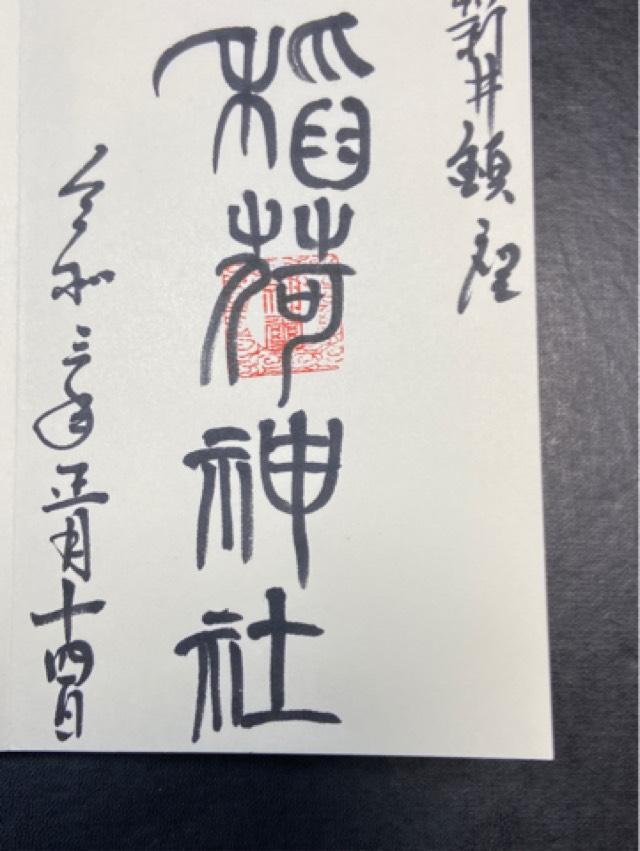 新井鎮座
稻荷神社
令和三年正月十四日